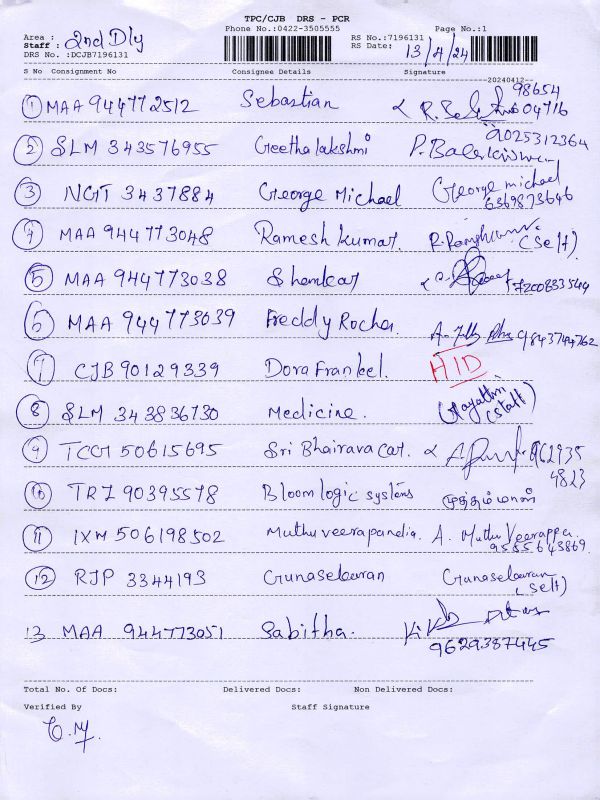 TPC/CJB DRS - PCR
Phone No.:0422-3505555 Page No.:1
Area :
Staff : 2nd Dly RS No.:7196131
RS Date: 13/4/24
DRS No. :DCJB7196131
S No Consignment No Consignee Details Signature
20240412
1 MAA 944772512 Sebastian 98654 04716
2 SLM 343576955 Geethalakshmi P. 9025312364
3 NGT 3437884 George Michael George michael 6369873646
4 MAA 944773048 Ramesh kumar. (Self)
5 MAA 944773038 Shankar 7200833544
6 MAA 944773039 Freddy Rocha. 9843744762
7 CJB 90129339 Dora Frankel. HID
8 SLM 343836730 Medicine. Gayathri (Staff)
9 TCG 50615695 Sri Bhairava Car. 962935 4823
10 TRZ 90395578 Bloom logic systems முத்தம்மாள்
11 IXM 506198502 Muthuveerapandia. A. Muthu Veerappa. 9585643869
12 RJP 3344193 Gunasekaran Gunasekaran (Self)
13 MAA 944773051 Sabitha. 9629387445
Total No. Of Docs: Delivered Docs: Non Delivered Docs:
Verified By Staff Signature